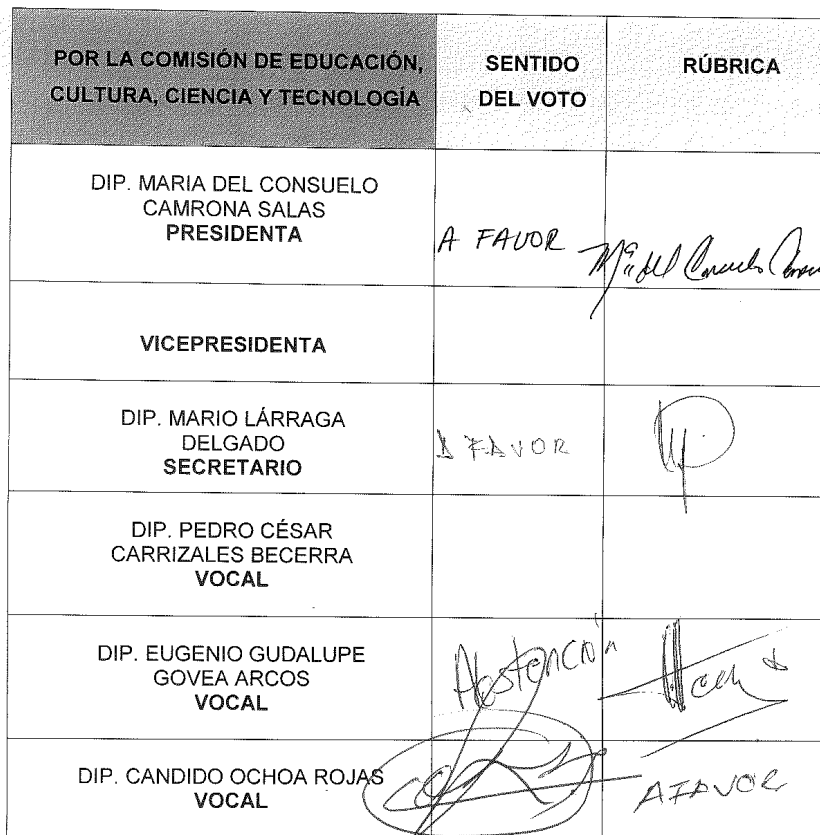 POR LA COMISIÓN DE EDUCACIÓN,
CULTURA, CIENCIA Y TECNOLOGÍA
SENTIDO
DEL VOTO
RÚBRICA
DIP. MARIA DEL CONSUELO
CAMRONA SALAS
PRESIDENTA
A FAVOR
Mª del Consuelo
VICEPRESIDENTA
DIP. MARIO LÁRRAGA
DELGADO
SECRETARIO
A FAVOR
DIP. PEDRO CÉSAR
CARRIZALES BECERRA
VOCAL
DIP. EUGENIO GUDALUPE
GOVEA ARCOS
VOCAL
Abstención
DIP. CANDIDO OCHOA ROJAS
VOCAL
A FAVOR